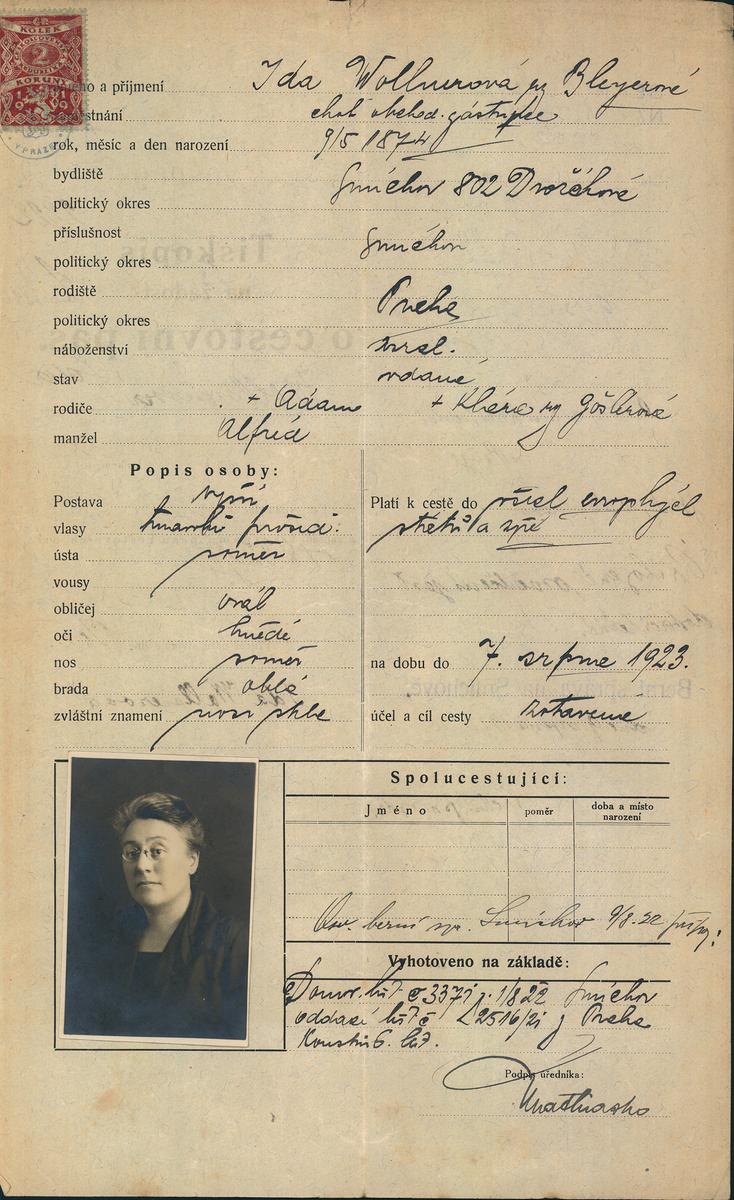 KOLEK
2
KORUNY
1919
V PRAZE
jméno a příjmení Ida Wollnerová roz Bleyerové
zaměstnání choť obchod. zástupce
rok, měsíc a den narození 9/5 1874
bydliště Smíchov 802 Dvořákové
politický okres
příslušnost Smíchov
politický okres
rodiště Praha
politický okres
náboženství israel.
stav vdaná
rodiče + Adam + Klára roz Göšlerová
manžel Alfréd
Popis osoby:
Postava vyšší
vlasy tmavků prošed:
ústa souměr
vousy
obličej ovál
oči hnědé
nos souměr
brada oblá
zvláštní znamení nosí skla
Platí k cestě do všech evropských
států a zpě
na dobu do 7. srpna 1923.
účel a cíl cesty zotavení
Spolucestující:
Jméno poměr doba a místo narození
Osv. berní spr. Smíchov 9/8. 22
Vyhotoveno na základě:
Domov. list č 3371 z. 1/8 22 Smíchov
oddací list č 2516/21 z Praha
Podpis úředníka: